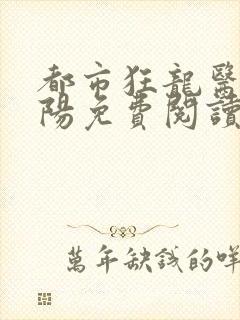 都市狂龍醫
陽免費閱讀
萬年缺錢的咩